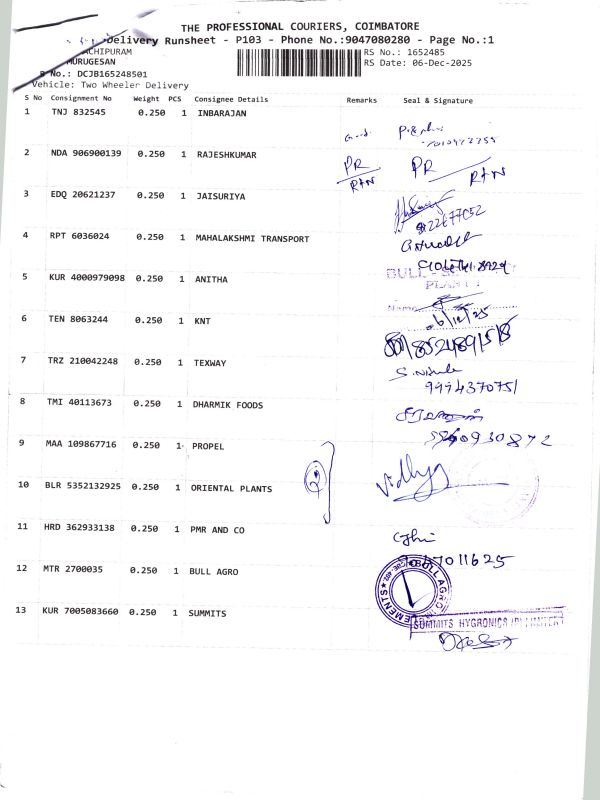 THE PROFESSIONAL COURIERS, COIMBATORE
Delivery Runsheet - P103 - Phone No.:9047080280 - Page No.:1
ACHIPURAM
RS No.: 1652485
MURUGESAN
RS Date: 06-Dec-2025
No.: DCJB165248501
Vehicle: Two Wheeler Delivery
S No Consignment No Weight PCS Consignee Details Remarks Seal & Signature
1 TNJ 832545 0.250 1 INBARAJAN
2 NDA 906900139 0.250 1 RAJESHKUMAR PR RTN PR RTN
3 EDQ 20621237 0.250 1 JAISURIYA
4 RPT 6036024 0.250 1 MAHALAKSHMI TRANSPORT
5 KUR 4000979098 0.250 1 ANITHA
PLANT
Name
6/12/25
6 TEN 8063244 0.250 1 KNT
7 TRZ 210042248 0.250 1 TEXWAY
9994370751
8 TMI 40113673 0.250 1 DHARMIK FOODS
9 MAA 109867716 0.250 1 PROPEL
10 BLR 5352132925 0.250 1 ORIENTAL PLANTS
Vidhya
11 HRD 362933138 0.250 1 PMR AND CO
12 MTR 2700035 0.250 1 BULL AGRO
BULL AGRO
13 KUR 7005083660 0.250 1 SUMMITS
SUMMITS HYGRONICS (P) LIMITED